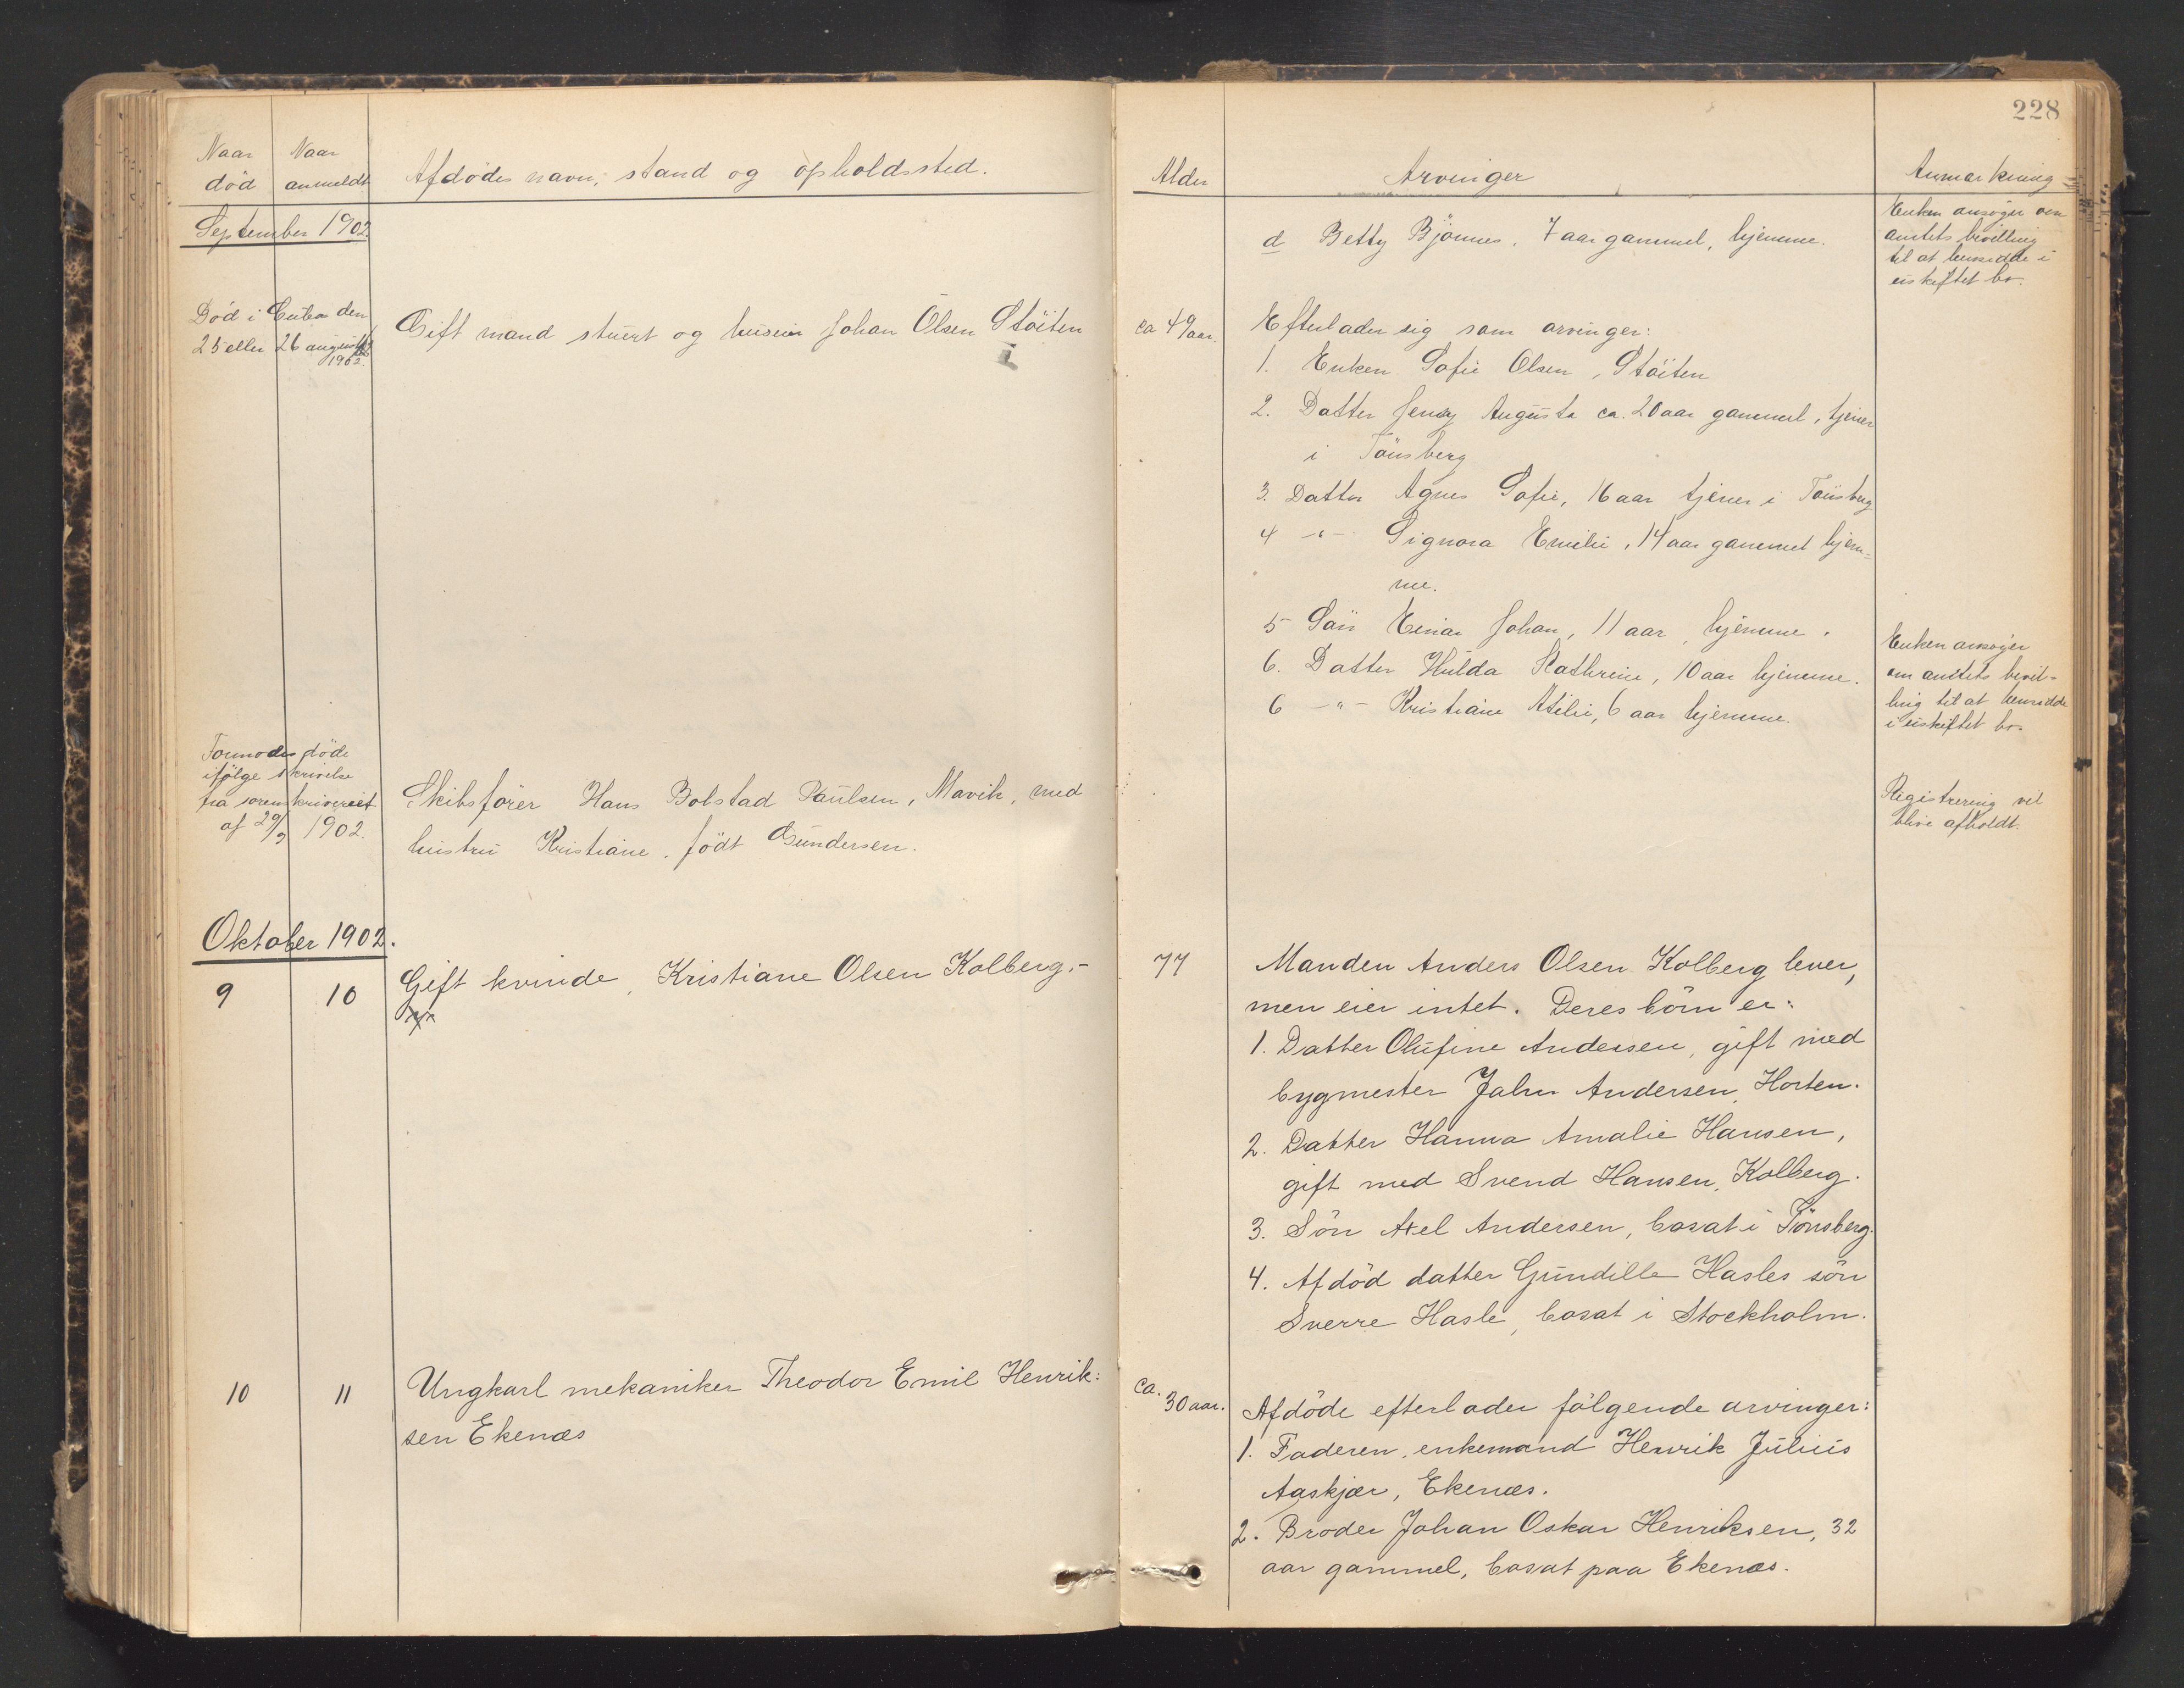 228
Naar død
Naar anmeldt
Afdødes navn, stand og opholdssted.
Alder
Arvinger
Anmærkning
September 1902.
d Betty Bjönnes, 7 aar gammel, hjemme.
Enken ansøger om
amtets bevilling
til at hensidde i
uskiftet bo.
Død i Cuba den
25 eller 26 august
1902.
Gift mand stuert og huseier Johan Olsen Stöiten
ca 49 aar.
Efterlader sig som arvinger:
1. Enken Sofie Olsen, Stöiten
2. Datter Jenny Augusta ca. 20 aar gammel, tjener
i Tönsberg
3. Datter Agnes Sofie, 16 aar tjener i Tönsberg
4 -"- Signora Emilie, 14 aar gammel hjem-
me.
5 Sön Einar Johan, 11 aar, hjemme.
6. Datter Hulda Kathrine, 10 aar hjemme.
6 -"- Kristiane Otilie, 6 aar hjemme.
Enken ansøger
om amtets bevil-
ling til at hensidde
i uskiftet bo.
Formodes døde
ifölge skrivelse
fra sorenskriveriet
af 29/9 1902.
Skibsförer Hans Bolstad Paulsen, Mavik, med
hustru Kristiane, födt Gundersen.
Registrering vil
blive afholdt.
Oktober 1902.
9
10
Gift kvinde, Kristiane Olsen Kolberg.-
77
Manden Anders Olsen Kolberg lever,
men eier intet. Deres börn er:
1. Datter Olufine Andersen, gift med
bygmester John Andersen, Horten.
2. Datter Hanna Amalie Hansen,
gift med Svend Hansen, Kolberg.
3. Sön Axel Andersen, bosat i Tönsberg.
4. Afdöd datter Gundille Hasles sön
Sverre Hasle, bosat i Stockholm.
10
11
Ungkarl mekaniker Theodor Emil Henrik:
sen Ekenæs
ca. 30 aar.
Afdöde efterlader fölgende arvinger:
1. Faderen, enkemand Henrik Julius
Aaskjær, Ekenæs.
2. Broder Johan Oskar Henriksen, 32
aar gammel, bosat paa Ekenæs.